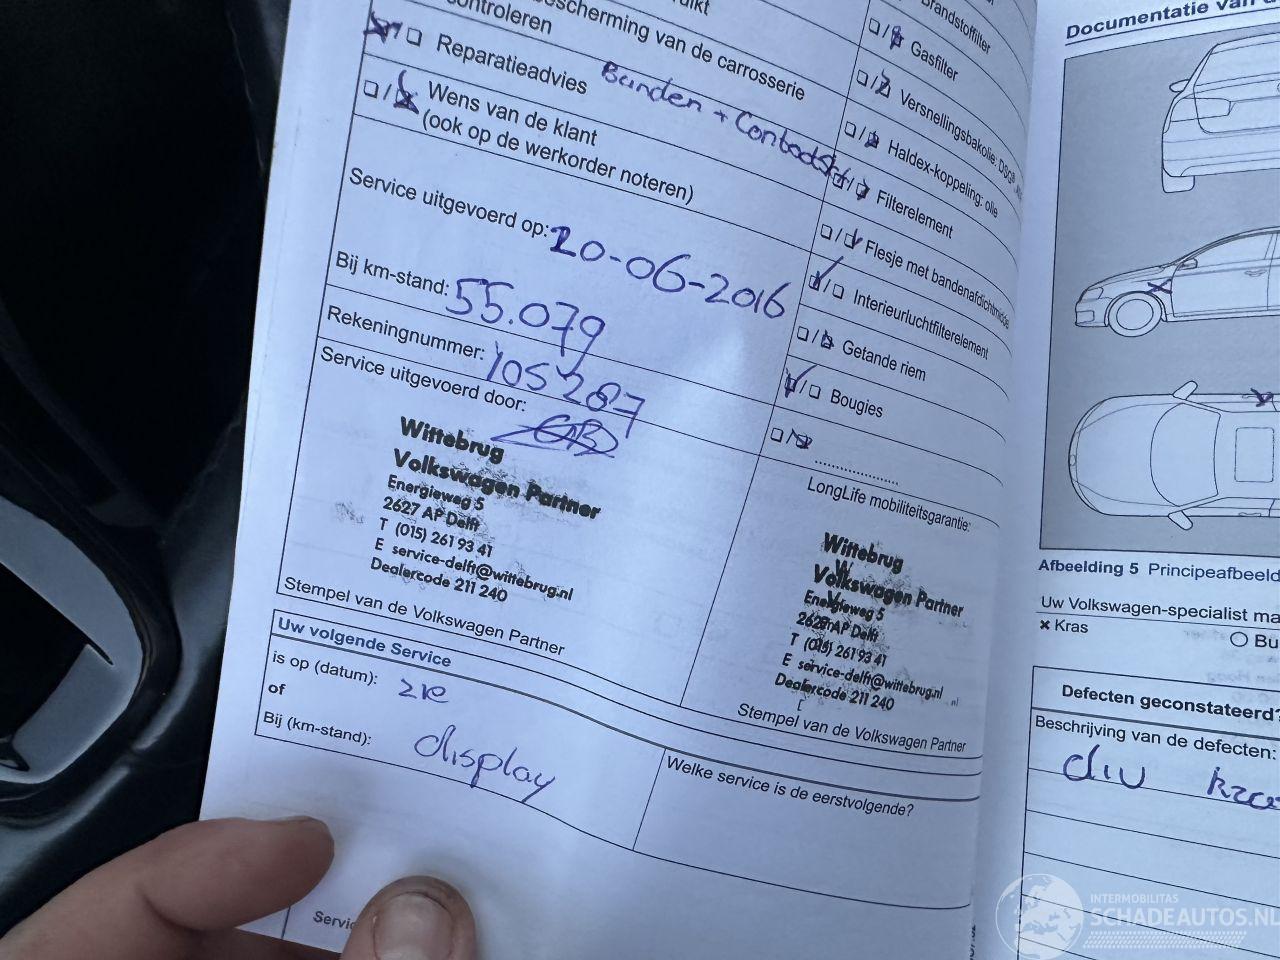 bescherming van de carrosserie
controleren
Reparatieadvies Banden +
Wens van de klant
(ook op de werkorder noteren)
Service uitgevoerd op: 20-06-2016
Bij km-stand: 55.079
Rekeningnummer: 105287
Service uitgevoerd door:
Wittebrug
Volkswagen Partner
Energieweg 5
2627 AP Delft
T (015) 261 93 41
E service-delft@wittebrug.nl
Dealercode 211 240
Stempel van de Volkswagen Partner
Brandstoffilter
Gasfilter
Versnellingsbakolie: DSG®
Haldex-koppeling: olie
Filterelement
Flesje met bandenafdichtmiddel
Interieurluchtfilterelement
Getande riem
Bougies
LongLife mobiliteitsgarantie:
Wittebrug
Volkswagen Partner
Energieweg 5
2627 AP Delft
T (015) 261 93 41
E service-delft@wittebrug.nl
Dealercode 211 240
Stempel van de Volkswagen Partner
Uw volgende Service
is op (datum): zie
of
Bij (km-stand): display
Welke service is de eerstvolgende?
Documentatie van
Afbeelding 5 Principeafbeeld
Uw Volkswagen-specialist ma
× Kras
Bu
Defecten geconstateerd?
Beschrijving van de defecten:
div
INTERMOBILITAS
SCHADEAUTOS.NL